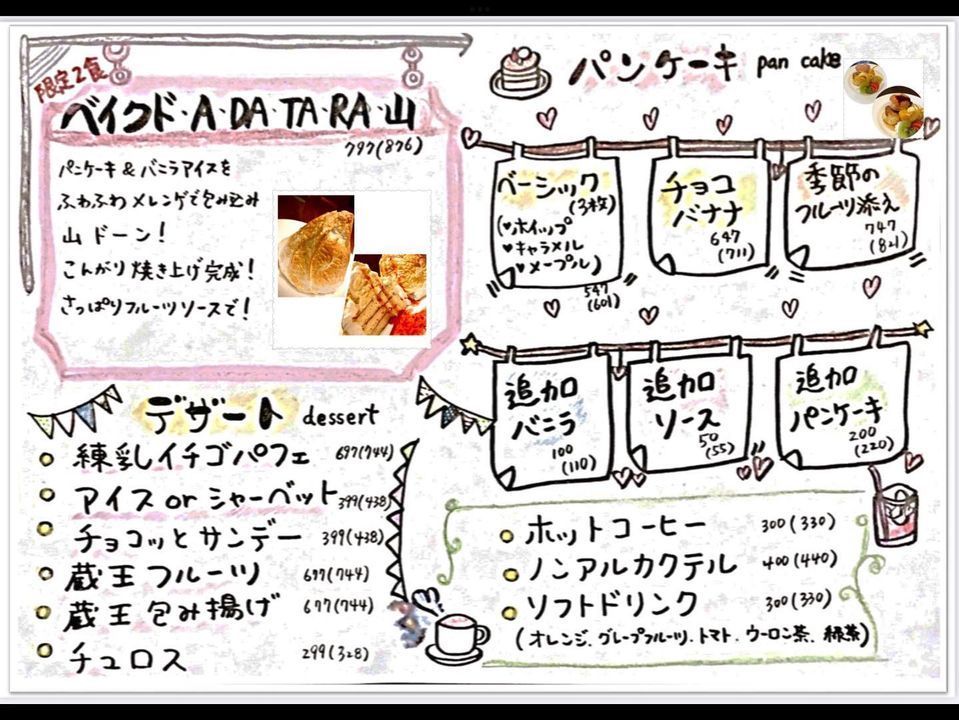 限定2食
ベイクド・A・DA・TA・RA・山
797(876)
パンケーキ&バニラアイスを
ふわふわメレンゲで包み込み
山ドーン!
こんがり焼き上げ完成!
さっぱりフルーツソースで!
パンケーキ pan cake
ベーシック
(3枚)
(♥ホイップ
♥キャラメル
♥メープル)
547
(601)
チョコ
バナナ
647
(711)
季節の
フルーツ添え
747
(821)
追加
バニラ
100
(110)
追加
ソース
50
(55)
追加
パンケーキ
200
(220)
デザート dessert
練乳イチゴパフェ 697(744)
アイス or シャーベット 399(438)
チョコッとサンデー 399(438)
蔵王フルーツ 677(744)
蔵王包み揚げ 677(744)
チュロス 299(328)
ホットコーヒー 300(330)
ノンアルカクテル 400(440)
ソフトドリンク 300(330)
(オレンジ、グレープフルーツ、トマト、ウーロン茶、緑茶)